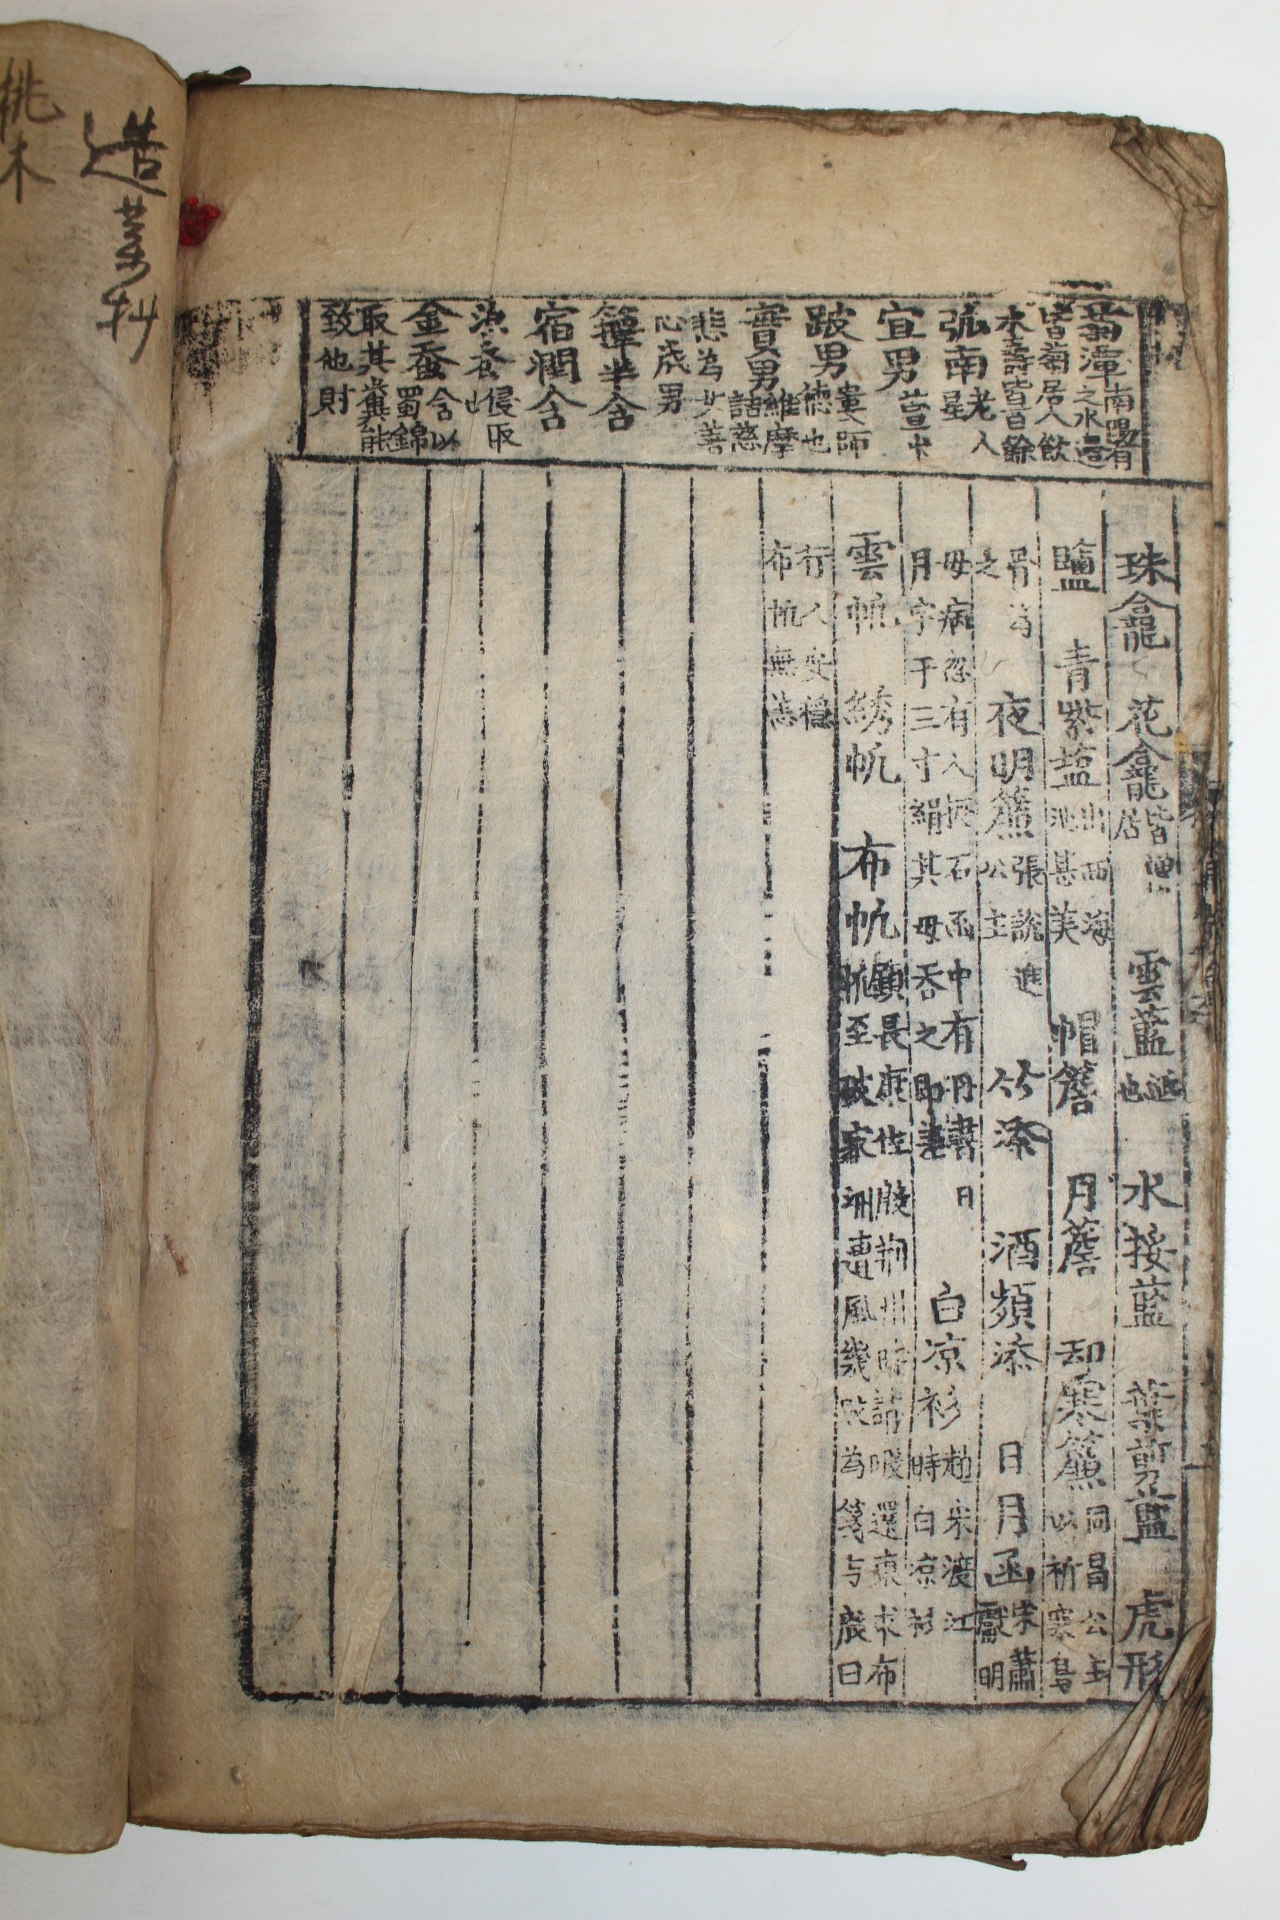 菊潭南陽有
之水邊
皆菊居人飲
水壽皆百餘
弧南老人
星
宜男萱草
跛男婁師
德也
實男維摩
詰慈
悲為女善
心成男
簟半含
宿潤含
漁蚕侵取
也
金蚕含以
蜀錦
取其糞能
致他財
珠龕 花龕皆僧
居 雲藍 水接藍 葉剪藍 虎形
鹽 青紫盐出西海
池甚美 帽簷 月簷 却寒簾同昌公主
以祈寒鳥
骨為
之 夜明簾張說進
公主 竹漆 酒頻添 日月函宋蕭
獻明
母病忽有人捉石函中有丹書曰
月字于三寸絹其母吞之即差 白凉衫趙宋渡江
時白凉衫
雲帆 綉帆 布帆顧長康佐殷荊州時請暇還東求布
帆至破冢洲遭風幾敗為箋与殷曰
行人安穩
布帆無恙
造菓抄
桃木